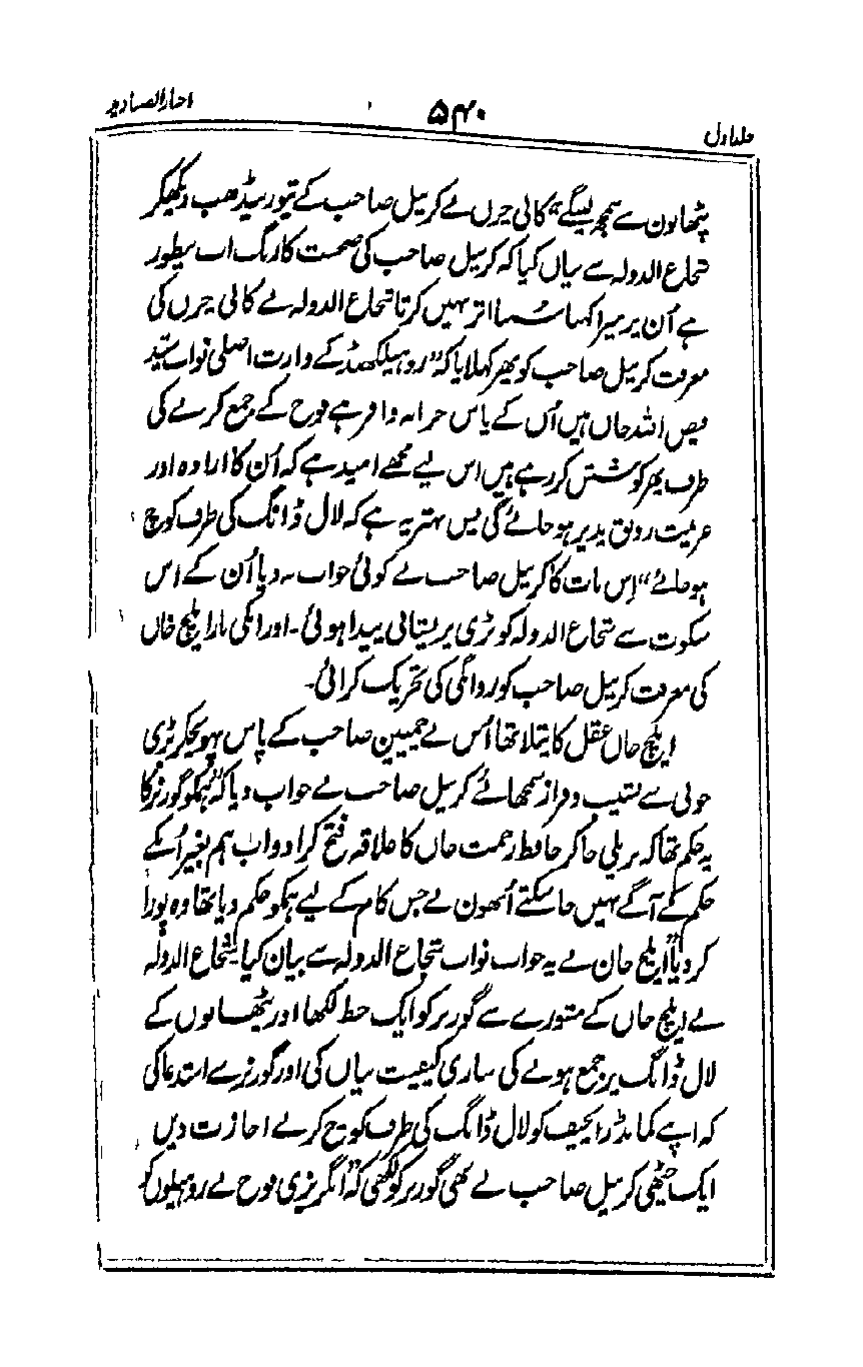 اخبار الصنادید
۵۴۰
جلد اول
پٹھانون سے سمجھ لینگے" کالی چرن نے کرنیل صاحب کے تیور بیڈھب دیکھکر
شجاع الدولہ سے بیان کیا کہ کرنیل صاحب کی صحبت کا رنگ اب بیطور
ہے اُن پر میرا کہا سُنا اثر نہیں کرتا شجاع الدولہ نے کالی چرن کی
معرفت کرنیل صاحب کو پھر کہلایا کہ "روہیلکھنڈ کے وارث اصلی نواب سید
فیض اللہ خان ہیں اُن کے پاس خزانہ وافر ہے فوج کے جمع کرنے کی
طرف پھر کوشش کر رہے ہیں اس لیے مجھے امید ہے کہ اُن کا ارادہ اور
عزیمت رونق پذیر ہو جائے گی پس بہتر یہ ہے کہ لال ڈانگ کی طرف کوچ
ہو جائے" اِس بات کا کرنیل صاحب نے کوئی جواب نہ دیا اُن کے اس
سکوت سے شجاع الدولہ کو بڑی پریشانی پیدا ہوئی۔ اور انکی بار ایلچ خاں
کی معرفت کرنیل صاحب کو روانگی کی تحریک کرائی۔
ایلچ خان عقل کا پتلا تھا اُس نے چمپین صاحب کے پاس پہونچکر بڑی
خوبی سے نشیب و فراز سمجھائے کرنیل صاحب نے جواب دیا کہ "ہمکو گورنر کا
یہ حکم تھا کہ بریلی جا کر حافظ رحمت خان کا علاقہ فتح کرا دو اب ہم بغیر اُنکے
حکم کے آگے نہیں جا سکتے اُنھون نے جس کام کے لیے ہمکو حکم دیا تھا وہ پورا
کر دیا" ایلچ خان نے یہ جواب نواب شجاع الدولہ سے بیان کیا شجاع الدولہ
نے ایلچ خان کے مشورے سے گورنر کو ایک خط لکھا اور پٹھانوں کے
لال ڈانگ پر جمع ہونے کی ساری کیفیت بیان کی اور گورنر سے استدعا کی
کہ اپنے کمانڈر انچیف کو لال ڈانگ کی طرف کوچ کرنے اجازت دیں
ایک چٹھی کرنیل صاحب نے بھی گورنر کو لکھی کہ "انگریزی فوج نے روہیلوں کو